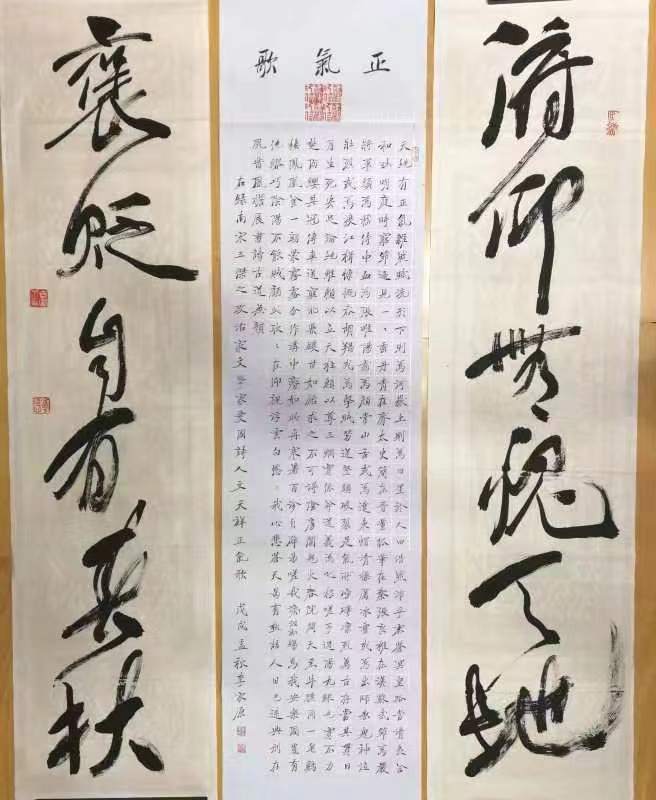 俯仰無愧天地
正氣歌
天地有正氣雜然賦流形下則為河嶽上則為日星於人曰浩然沛乎塞蒼冥皇路當清夷含
和吐明庭時窮節乃見一一垂丹青在齊太史簡在晉董狐筆在秦張良椎在漢蘇武節為嚴
將軍頭為嵇侍中血為張睢陽齒為顏常山舌或為遼東帽清操厲冰雪或為出師表鬼神泣
壯烈或為渡江楫慷慨吞胡羯或為擊賊笏逆豎頭破裂是氣所磅礴凜烈萬古存當其貫日
月生死安足論地維賴以立天柱賴以尊三綱實係命道義為之根嗟予遘陽九隸也實不力
楚囚纓其冠傳車送窮北鼎鑊甘如飴求之不可得陰房闃鬼火春院閟天黑牛驥同一皂鷄
棲鳳凰食一朝蒙霧露分作溝中瘠如此再寒暑百沴自辟易嗟哉沮洳場為我安樂國豈有
他繆巧陰陽不能賊顧此耿耿在仰視浮雲白悠悠我心悲蒼天曷有極哲人日已遠典刑在
夙昔風檐展書讀古道照顏
右錄南宋三傑之政治家文學家愛國詩人文天祥正氣歌 戊戌孟秋李家原
褒貶自有春秋